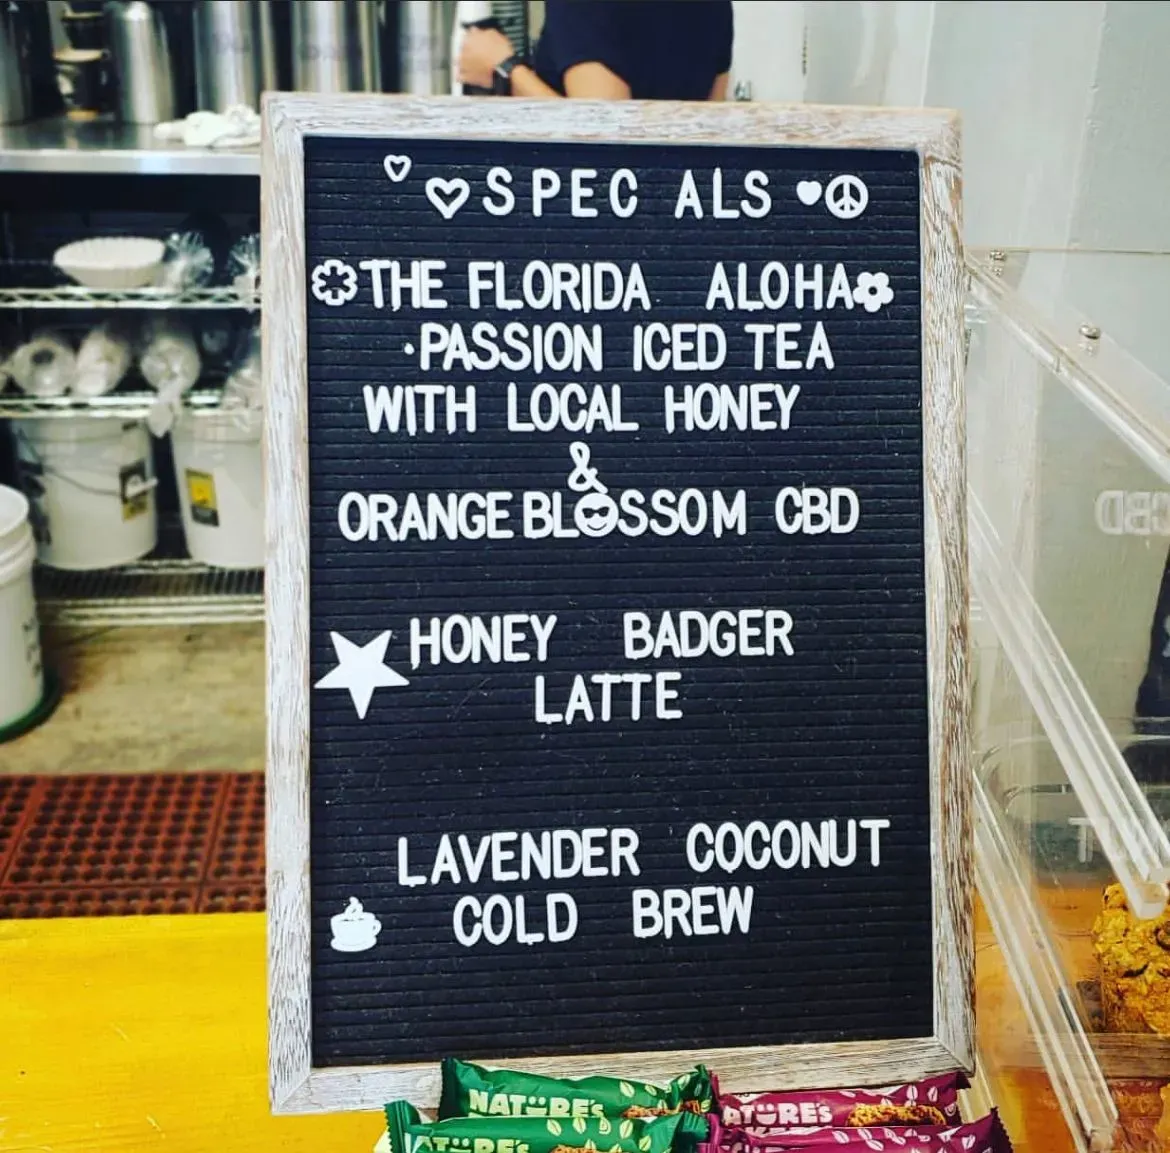 SPEC ALS
THE FLORIDA ALOHA
·PASSION ICED TEA
WITH LOCAL HONEY
&
ORANGE BLOSSOM CBD
HONEY BADGER
LATTE
LAVENDER COCONUT
COLD BREW
CBD
NATURE'S
NATURE'S